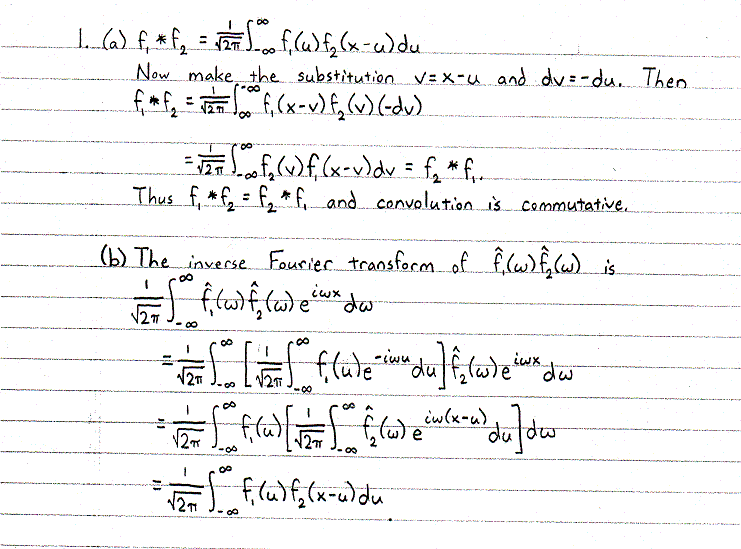 1. (a) f₁ * f₂ = 1/√2π ∫_-∞^∞ f₁(u) f₂(x-u) du
Now make the substitution v = x-u and dv = -du. Then
f₁ * f₂ = 1/√2π ∫_∞^-∞ f₁(x-v) f₂(v) (-dv)
= 1/√2π ∫_-∞^∞ f₂(v) f₁(x-v) dv = f₂ * f₁.
Thus f₁ * f₂ = f₂ * f₁ and convolution is commutative.
(b) The inverse Fourier transform of f̂₁(ω) f̂₂(ω) is
1/√2π ∫_-∞^∞ f̂₁(ω) f̂₂(ω) e^{iωx} dω
= 1/√2π ∫_-∞^∞ [1/√2π ∫_-∞^∞ f₁(u) e^{-iωu} du] f̂₂(ω) e^{iωx} dω
= 1/√2π ∫_-∞^∞ f₁(u) [1/√2π ∫_-∞^∞ f̂₂(ω) e^{iω(x-u)} du] dω
= 1/√2π ∫_-∞^∞ f₁(u) f₂(x-u) du.